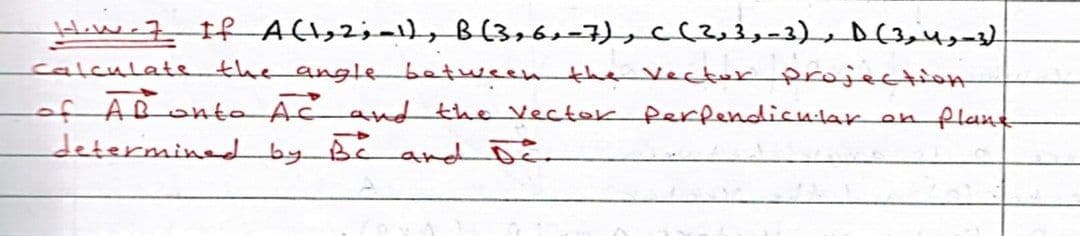 H.W.7 If A(1,2,-1), B(3,6,-7), C(2,3,-3), D(3,4,-3)
calculate the angle between the vector projection
of AB onto AC and the vector perpendicular on plane
determined by BC and DC.